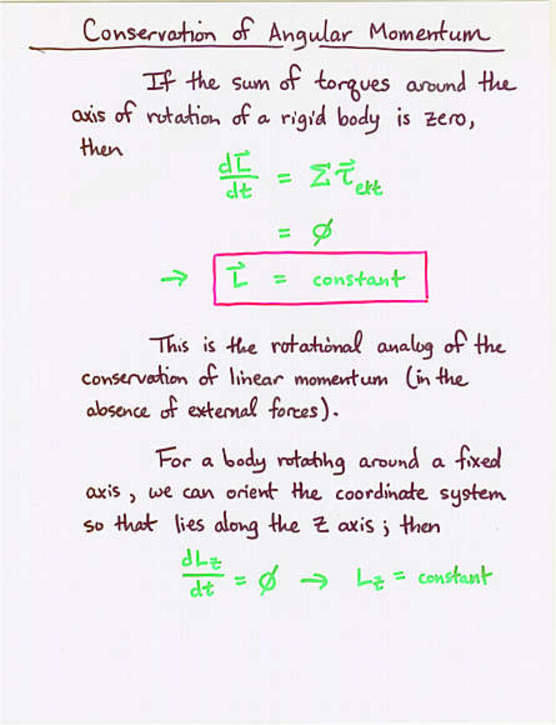 Conservation of Angular Momentum
If the sum of torques around the
axis of rotation of a rigid body is zero,
then
dL⃗/dt = Στ⃗ext
= ∅
→ L⃗ = constant
This is the rotational analog of the
conservation of linear momentum (in the
absence of external forces).
For a body rotating around a fixed
axis, we can orient the coordinate system
so that lies along the z axis; then
dLz/dt = ∅ → Lz = constant